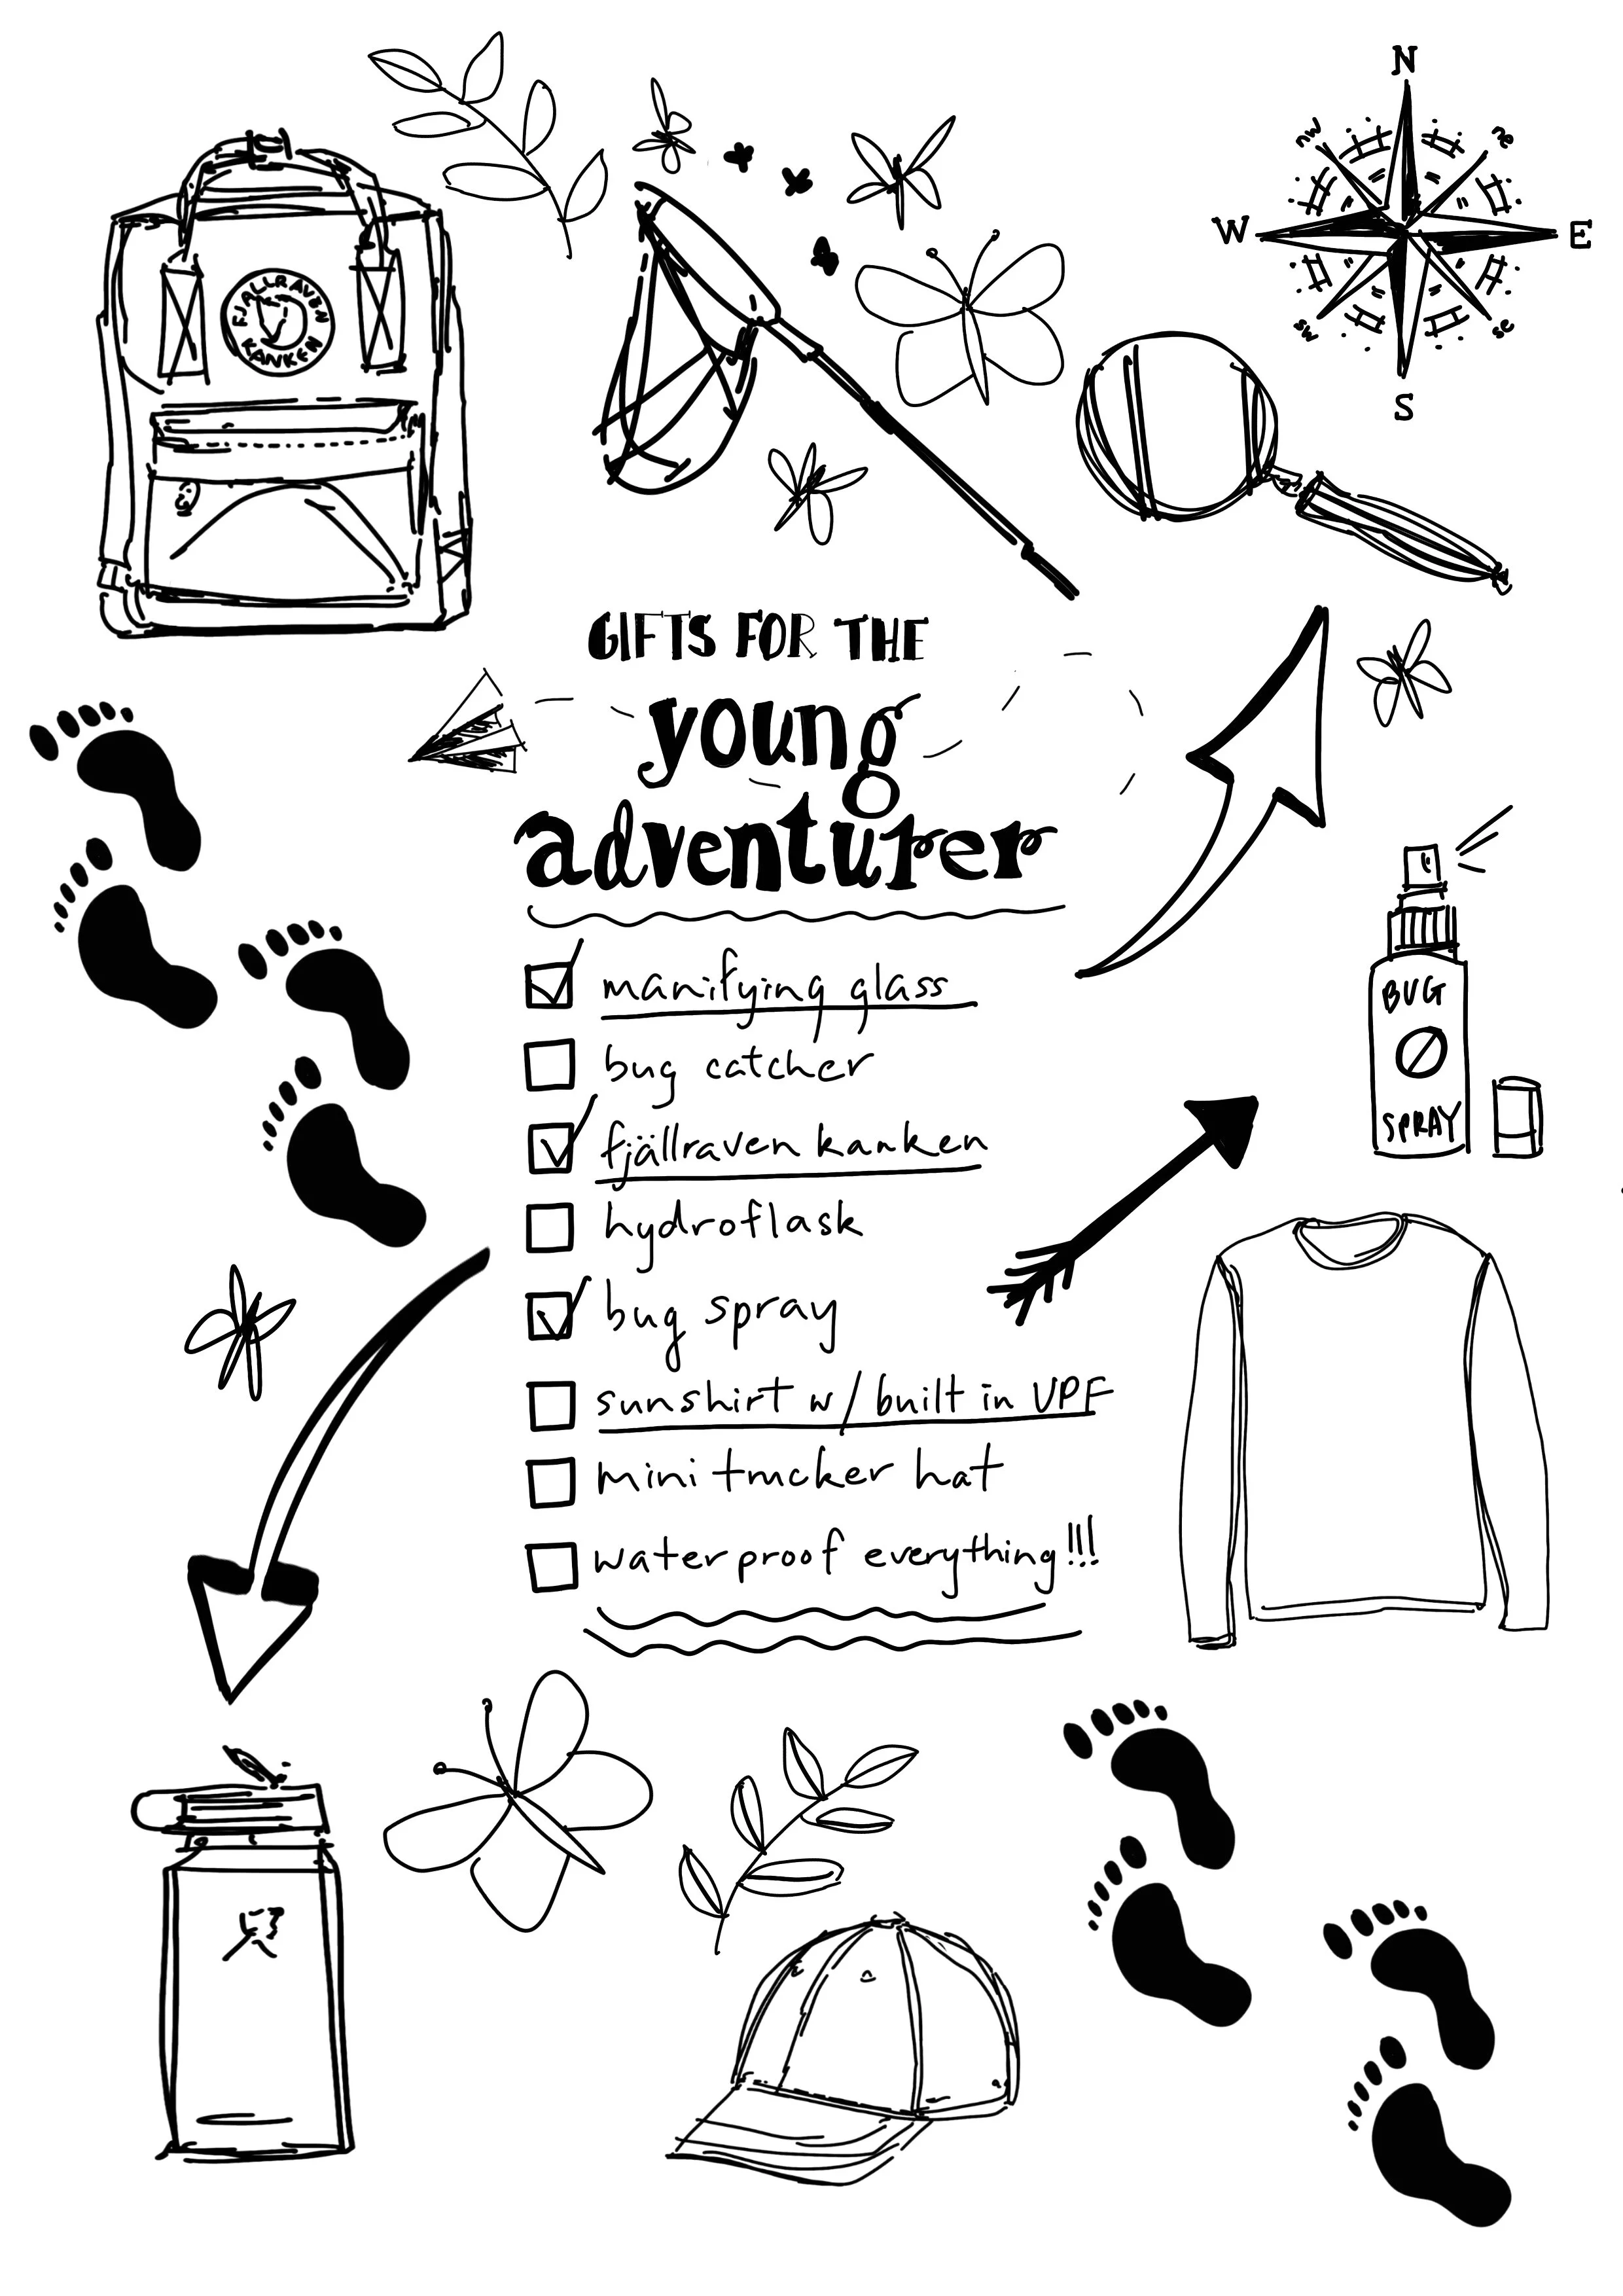 N
nw
ne
W
E
sw
se
S
FJALLRAVEN
KANKEN
GIFTS FOR THE
young
adventurer
manifying glass
bug catcher
fjällraven kanken
hydroflask
bug spray
sunshirt w/ built in UPF
mini trucker hat
waterproof everything!!!
BUG
SPRAY